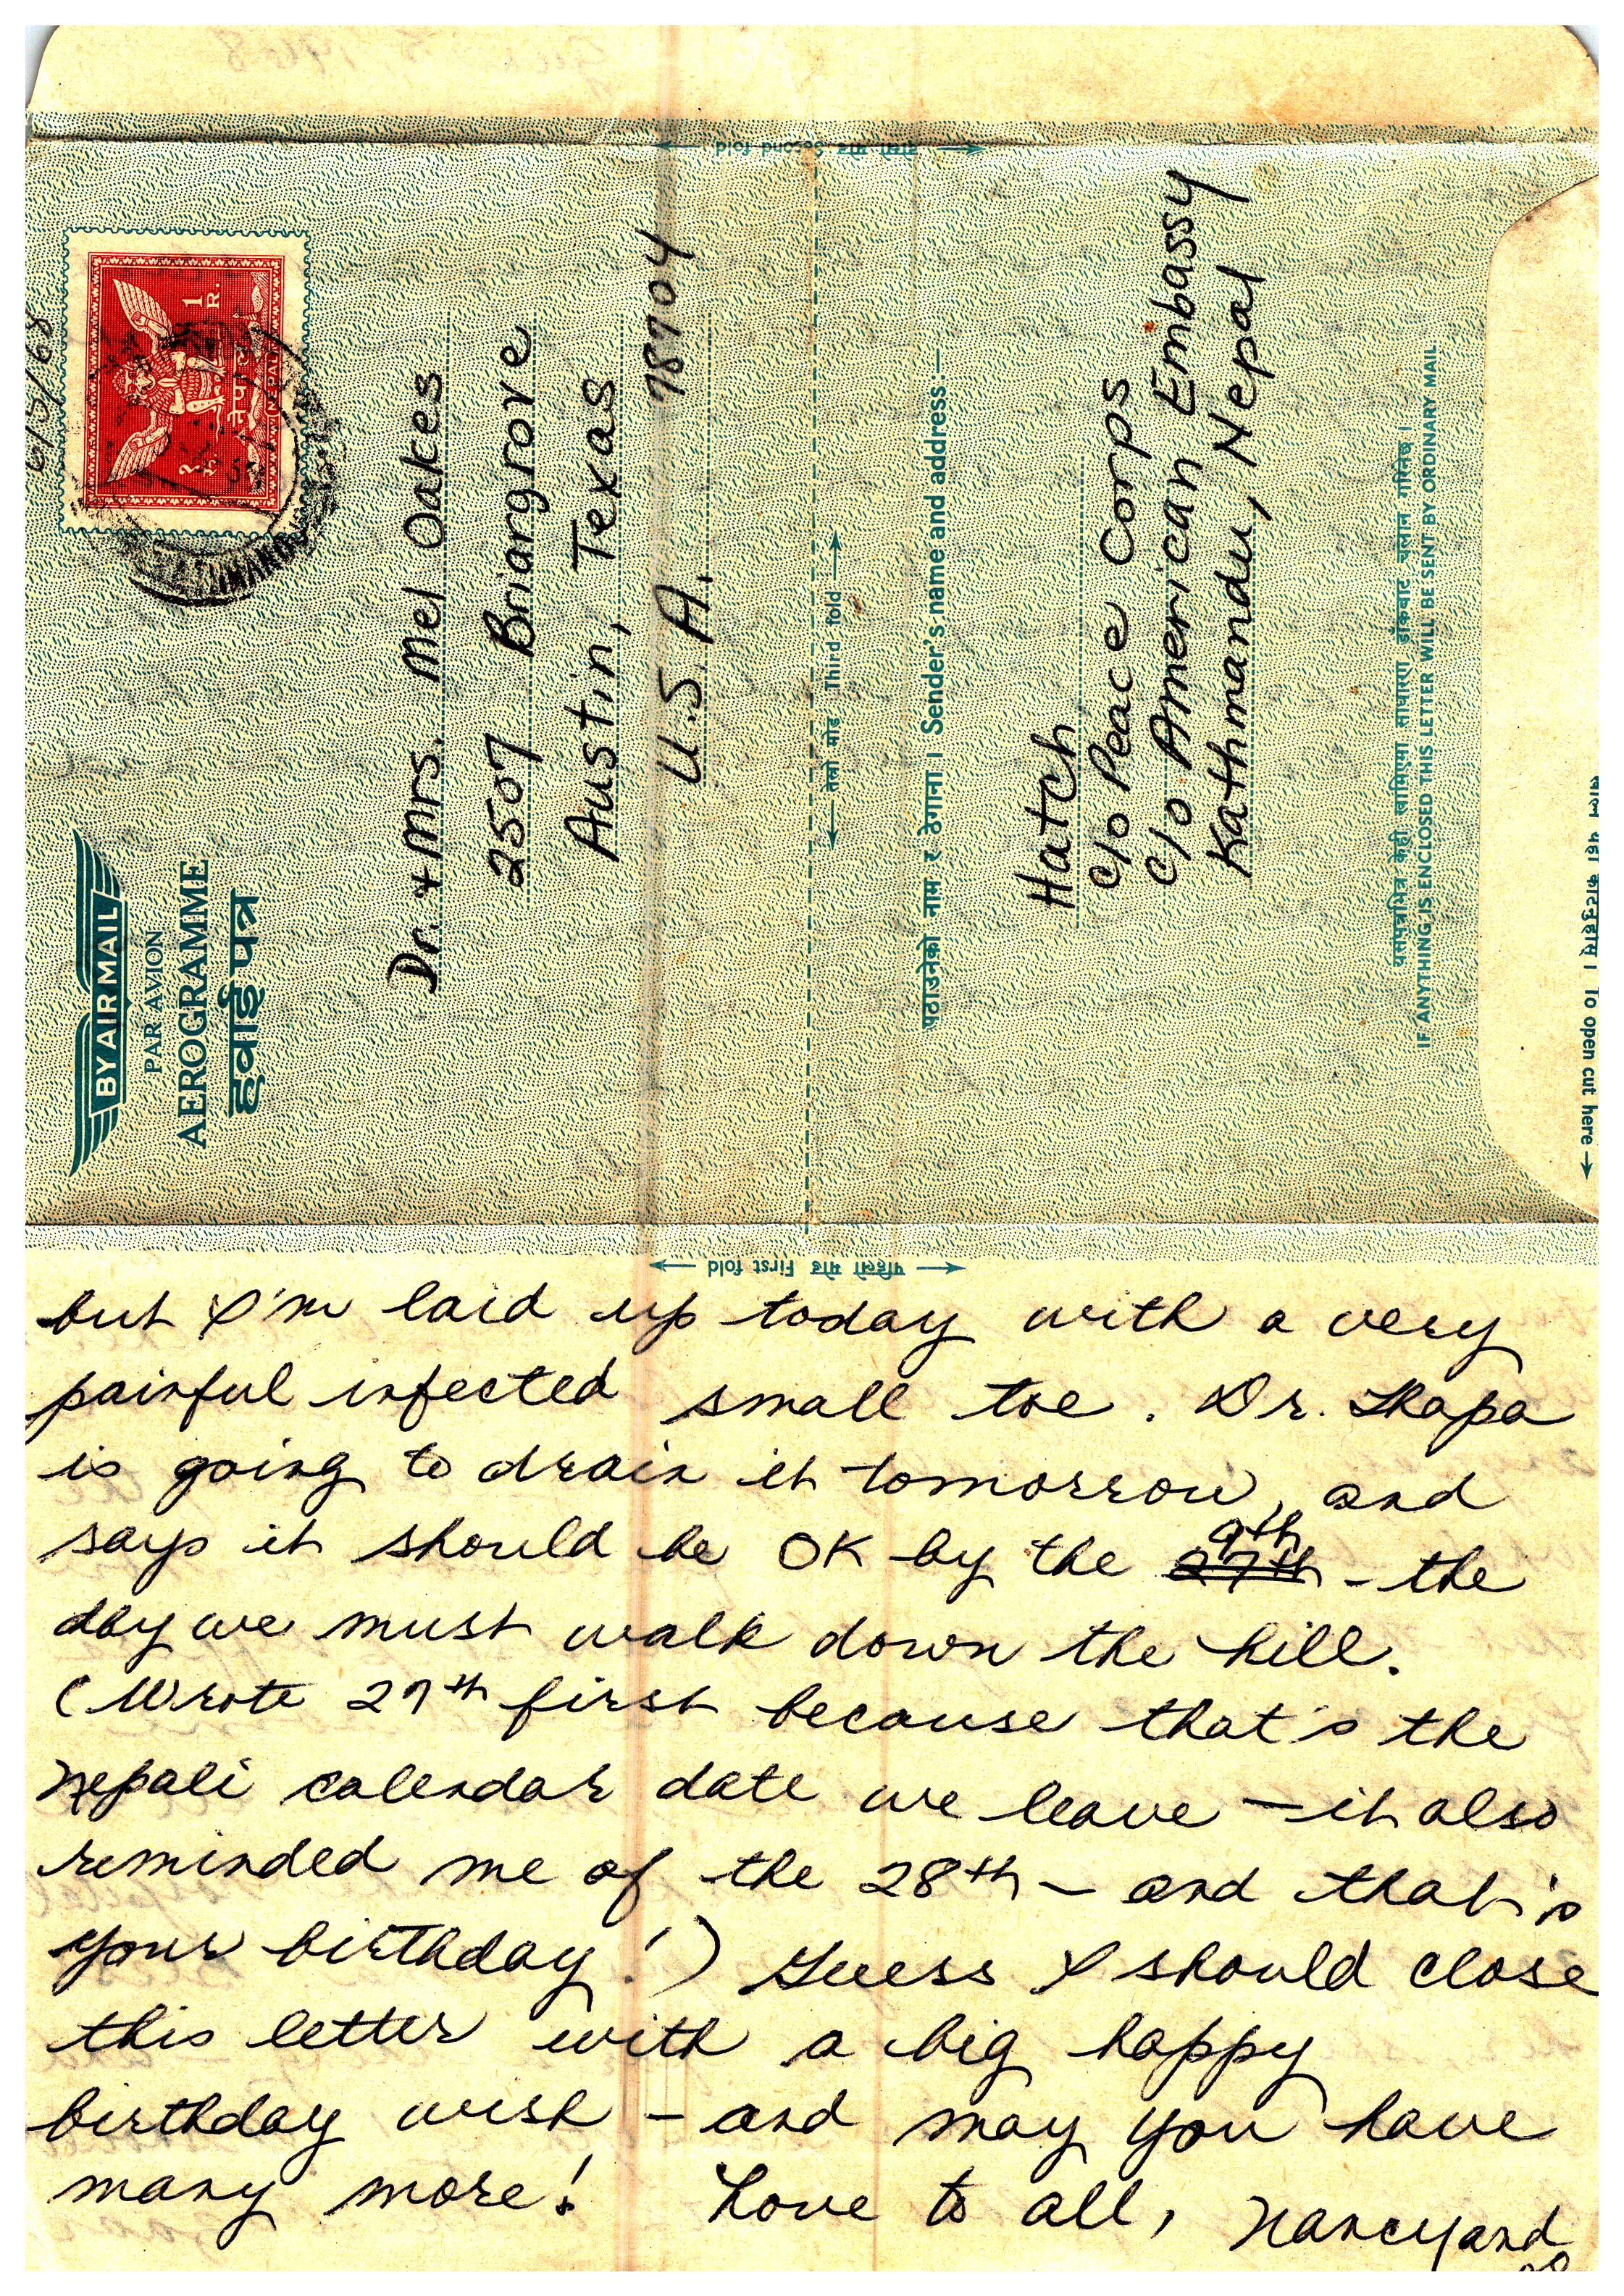 दोस्रो मोड Second fold
6/5/68
1
R.
१
रु.
नेपाल
(NEPAL)
KATHMANDU
BY AIR MAIL
PAR AVION
AEROGRAMME
हवाई पत्र
Dr. + Mrs. Mel Oakes
2507 Briargrove
Austin, Texas
U.S.A. 78704
तेस्रो मोड Third fold
पठाउनेको नाम र ठेगाना । Sender's name and address:—
Hatch
c/o Peace Corps
c/o American Embassy
Kathmandu, Nepal
यसपत्रभित्र केही खामिएमा साधारण डाँकबाट चलान गरिनेछ ।
IF ANYTHING IS ENCLOSED THIS LETTER WILL BE SENT BY ORDINARY MAIL
यहाँ काट्नुहोस् । To open cut here
पहिलो मोड First fold
but I'm laid up today with a very
painful infected small toe. Dr. Thapa
is going to drain it tomorrow, and
says it should be OK by the 27th 9th - the
day we must walk down the hill.
(Wrote 27th first because that's the
Nepali calendar date we leave - it also
reminded me of the 28th - and that's
your birthday!) Guess I should close
this letter with a big happy
birthday wish - and may you have
many more! Love to all, Nancy and